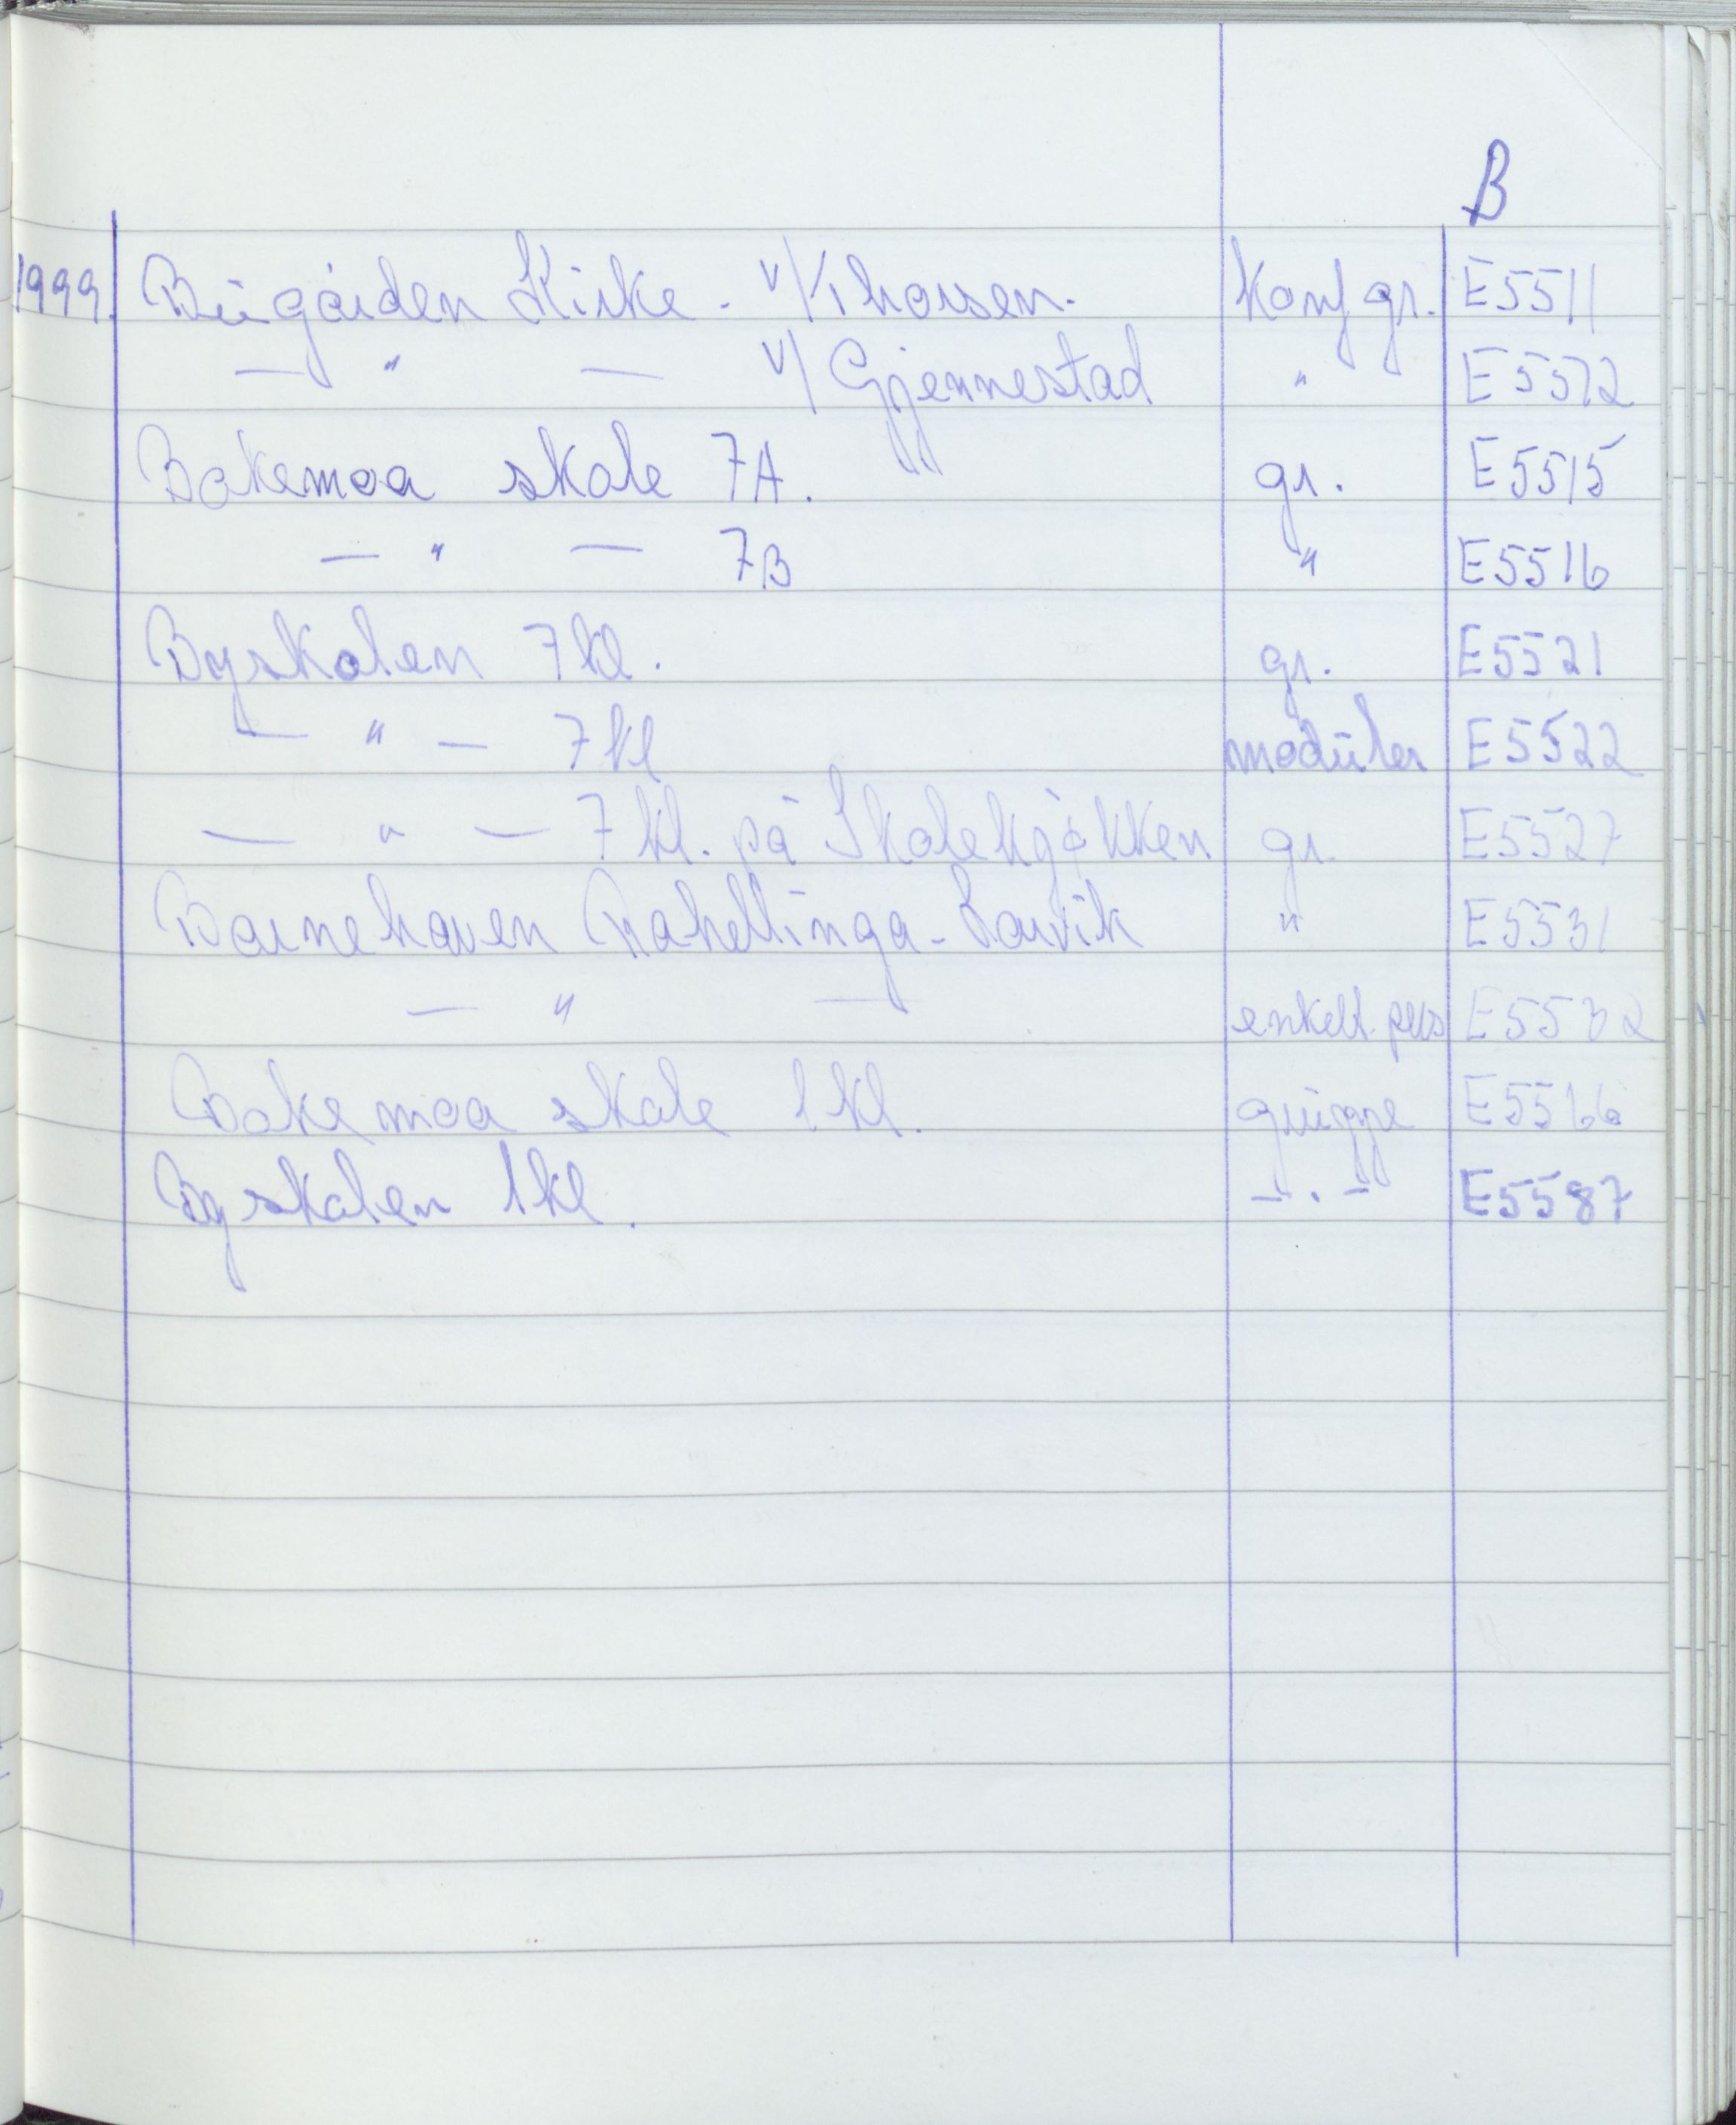 B
1999. Bugården Kirke - v/Thorsen. Konf gr. E5511
— " — v/ Gjennestad " E5512
Bakemoa skole 7A. gr. E5515
— " — 7B " E5516
Byskolen 7 kl. gr. E5521
— " — 7 kl moduler E5522
— " — 7 kl. på Skolekjøkken gr. E5527
Barnehaven - Larvik " E5531
— " — enkelt. pers E5532
Bakemoa skole 1 kl. gruppe E5566
Byskolen 1 kl. - . - E5587